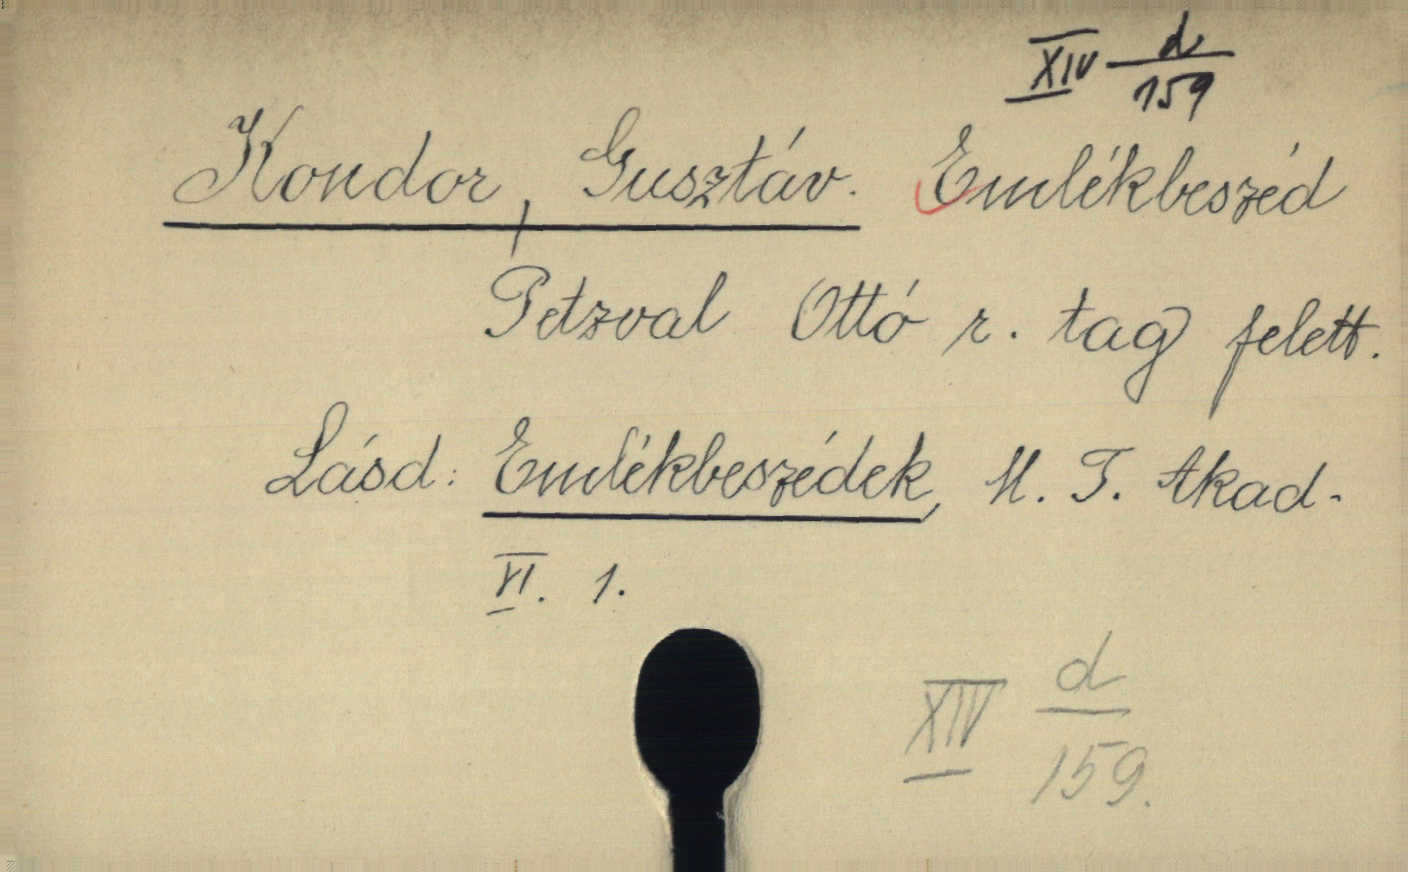 XIV d/159
Kondor, Gusztáv. Emlékbeszéd
Petzval Ottó r. tag felett.
Lásd: Emlékbeszédek, M. T. Akad.
VI. 1.
XIV d/159.